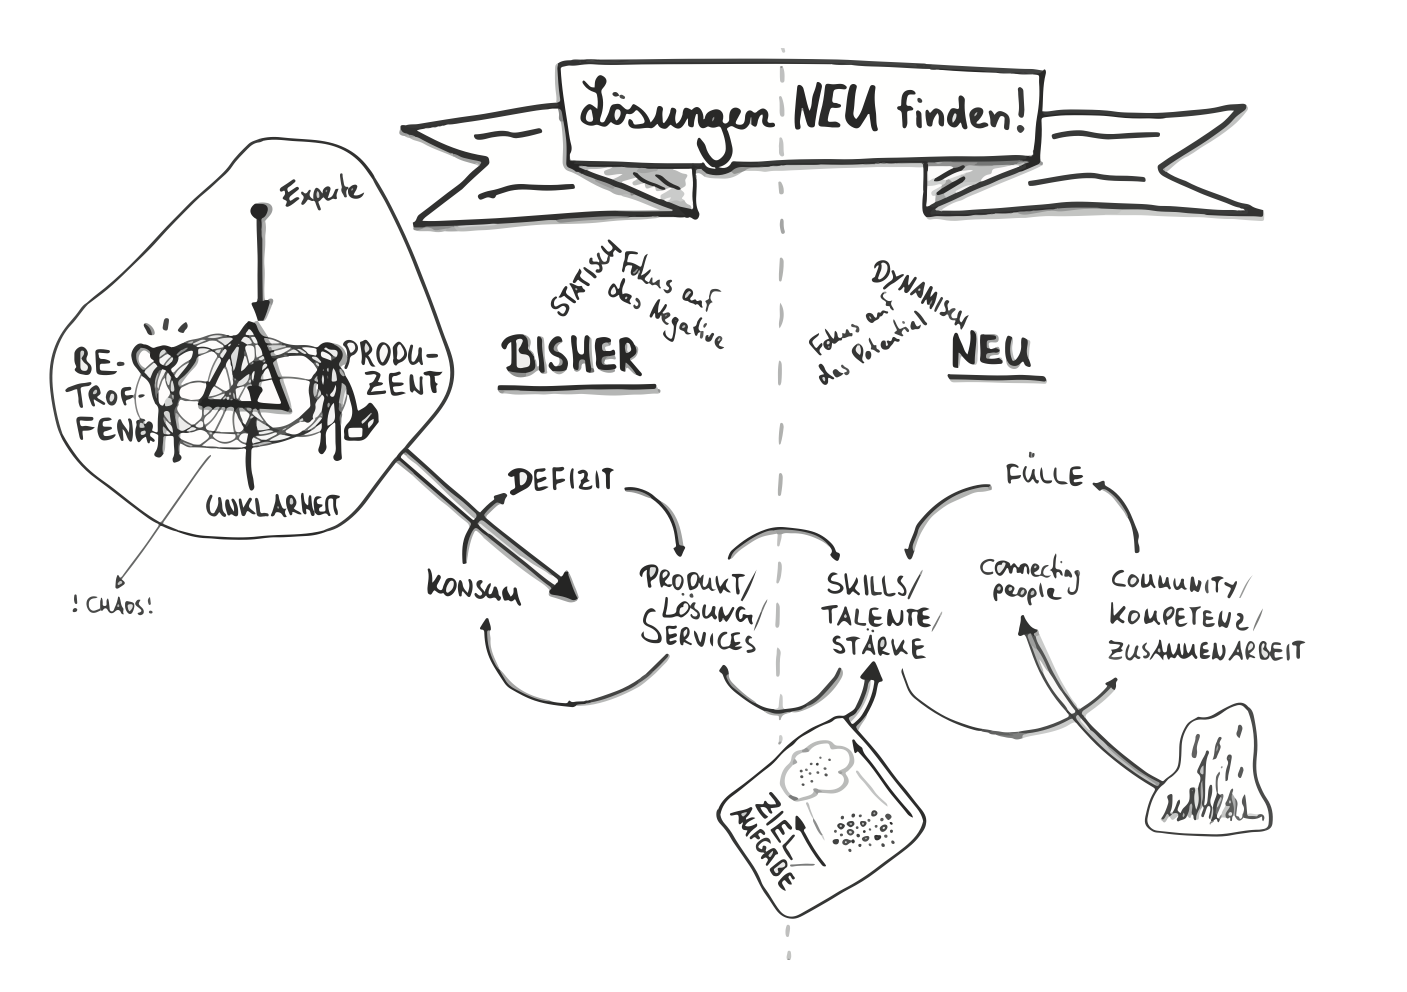 Lösungen NEU finden!
Experte
BE-
TROF-
FENER
PRODU-
ZENT
UNKLARHEIT
! CHAOS!
STATISCH
Fokus auf
das Negative
BISHER
DYNAMISCH
Fokus auf
das Potential
NEU
DEFIZIT
KONSUM
PRODUKT/
LÖSUNG/
SERVICES
SKILLS/
TALENTE/
STÄRKE
FÜLLE
connecting
people
COMMUNITY/
KOMPETENZ/
ZUSAMMENARBEIT
ZIEL
AUFGABE